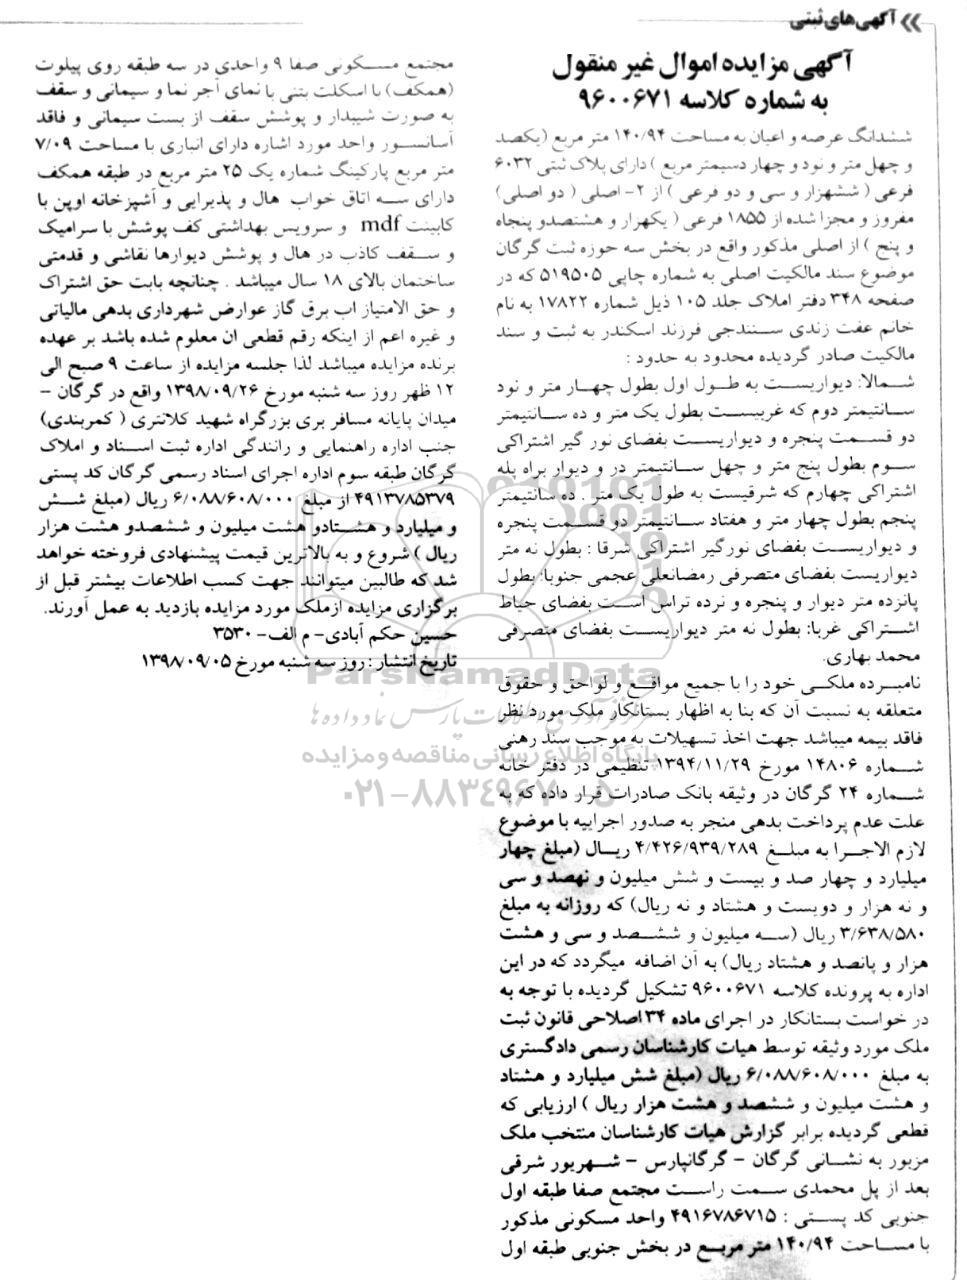 آگهی‌های ثبتی
آگهی مزایده اموال غیر منقول
به شماره کلاسه ۹۶۰۰۶۷۱
ششدانگ عرصه و اعیان به مساحت ۱۴۰/۹۴ متر مربع (یکصد
و چهل متر و نود و چهار دسیمتر مربع ) دارای پلاک ثبتی ۶۰۳۲
فرعی ( ششهزار و سی و دو فرعی ) از ۲- اصلی ( دو اصلی)
مفروز و مجزا شده از ۱۸۵۵ فرعی ( یکهزار و هشتصدو پنجاه
و پنج ) از اصلی مذکور واقع در بخش سه حوزه ثبت گرگان
موضوع سند مالکیت اصلی به شماره چاپی ۵۱۹۵۰۵ که در
صفحه ۳۴۸ دفتر املاک جلد ۱۰۵ ذیل شماره ۱۷۸۲۲ به نام
خانم عفت زندی سنندجی فرزند اسکندر به ثبت و سند
مالکیت صادر گردیده محدود به حدود :
شمالا: دیواریست به طول اول بطول چهار متر و نود
سانتیمتر دوم که غربیست بطول یک متر و ده سانتیمتر
دو قسمت پنجره و دیواریست بفضای نور گیر اشتراکی
سوم بطول پنج متر و چهل سانتیمتر در و دیوار براه پله
اشتراکی چهارم که شرقیست به طول یک متر . ده سانتیمتر
پنجم بطول چهار متر و هفتاد سانتیمتر دو قسمت پنجره
و دیواریست بفضای نورگیر اشتراکی شرقا : بطول نه متر
دیواریست بفضای متصرفی رمضانعلی عجمی جنوبا: بطول
پانزده متر دیوار و پنجره و نرده تراس است بفضای حیاط
اشتراکی غربا: بطول نه متر دیواریست بفضای متصرفی
محمد بهاری.
نامبرده ملکی خود را با جمیع مواقع و لواحق و حقوق
متعلقه به نسبت آن که بنا به اظهار بستانکار ملک مورد نظر
فاقد بیمه میباشد جهت اخذ تسهیلات به موجب سند رهنی
شماره ۱۴۸۰۶ مورخ ۱۳۹۴/۱۱/۲۹ تنظیمی در دفتر خانه
شماره ۲۴ گرگان در وثیقه بانک صادرات قرار داده که به
علت عدم پرداخت بدهی منجر به صدور اجراییه با موضوع
لازم الاجرا به مبلغ ۴/۴۲۶/۹۳۹/۲۸۹ ریال (مبلغ چهار
میلیارد و چهار صد و بیست و شش میلیون و نهصد و سی
و نه هزار و دویست و هشتاد و نه ریال) که روزانه به مبلغ
۳/۶۳۸/۵۸۰ ریال (سه میلیون و ششصد و سی و هشت
هزار و پانصد و هشتاد ریال) به آن اضافه میگردد که در این
اداره به پرونده کلاسه ۹۶۰۰۶۷۱ تشکیل گردیده با توجه به
در خواست بستانکار در اجرای ماده ۳۴ اصلاحی قانون ثبت
ملک مورد وثیقه توسط هیات کارشناسان رسمی دادگستری
به مبلغ ۶/۰۸۸/۶۰۸/۰۰۰ ریال (مبلغ شش میلیارد و هشتاد
و هشت میلیون و ششصد و هشت هزار ریال ) ارزیابی که
قطعی گردیده برابر گزارش هیات کارشناسان منتخب ملک
مزبور به نشانی گرگان - گرگانپارس - شهریور شرقی
بعد از پل محمدی سمت راست مجتمع صفا طبقه اول
جنوبی کد پستی : ۴۹۱۶۷۸۶۷۱۵ واحد مسکونی مذکور
با مساحت ۱۴۰/۹۴ متر مربع در بخش جنوبی طبقه اول
مجتمع مسکونی صفا ۹ واحدی در سه طبقه روی پیلوت
(همکف) با اسکلت بتنی با نمای آجر نما و سیمانی و سقف
به صورت شیبدار و پوشش سقف از بست سیمانی و فاقد
آسانسور واحد مورد اشاره دارای انباری با مساحت ۷/۰۹
متر مربع پارکینگ شماره یک ۲۵ متر مربع در طبقه همکف
دارای سه اتاق خواب هال و پذیرایی و آشپزخانه اوپن با
کابینت mdf و سرویس بهداشتی کف پوشش با سرامیک
و سقف کاذب در هال و پوشش دیوارها نقاشی و قدمتی
ساختمان بالای ۱۸ سال میباشد . چنانچه بابت حق اشتراک
و حق الامتیاز اب برق گاز عوارض شهرداری بدهی مالیاتی
و غیره اعم از اینکه رقم قطعی ان معلوم شده باشد بر عهده
برنده مزایده میباشد لذا جلسه مزایده از ساعت ۹ صبح الی
۱۲ ظهر روز سه شنبه مورخ ۱۳۹۸/۰۹/۲۶ واقع در گرگان -
میدان پایانه مسافر بری بزرگراه شهید کلانتری ( کمربندی)
جنب اداره راهنمایی و رانندگی اداره ثبت اسناد و املاک
گرگان طبقه سوم اداره اجرای اسناد رسمی گرگان کد پستی
۴۹۱۳۷۸۵۳۷۹ از مبلغ ۶/۰۸۸/۶۰۸/۰۰۰ ریال (مبلغ شش
و میلیارد و هشتادو هشت میلیون و ششصدو هشت هزار
ریال ) شروع و به بالاترین قیمت پیشنهادی فروخته خواهد
شد که طالبین میتوانند جهت کسب اطلاعات بیشتر قبل از
برگزاری مزایده ازملک مورد مزایده بازدید به عمل آورند.
حسین حکم آبادی- م الف- ۳۵۳۰
تاریخ انتشار : روز سه شنبه مورخ ۱۳۹۸/۰۹/۰۵
ParsNamadData
مرکز فرآوری اطلاعات پارس نماد داده‌ها
پایگاه اطلاع رسانی مناقصه و مزایده
۰۲۱-۸۸۳۴۹۶۷۰-۵